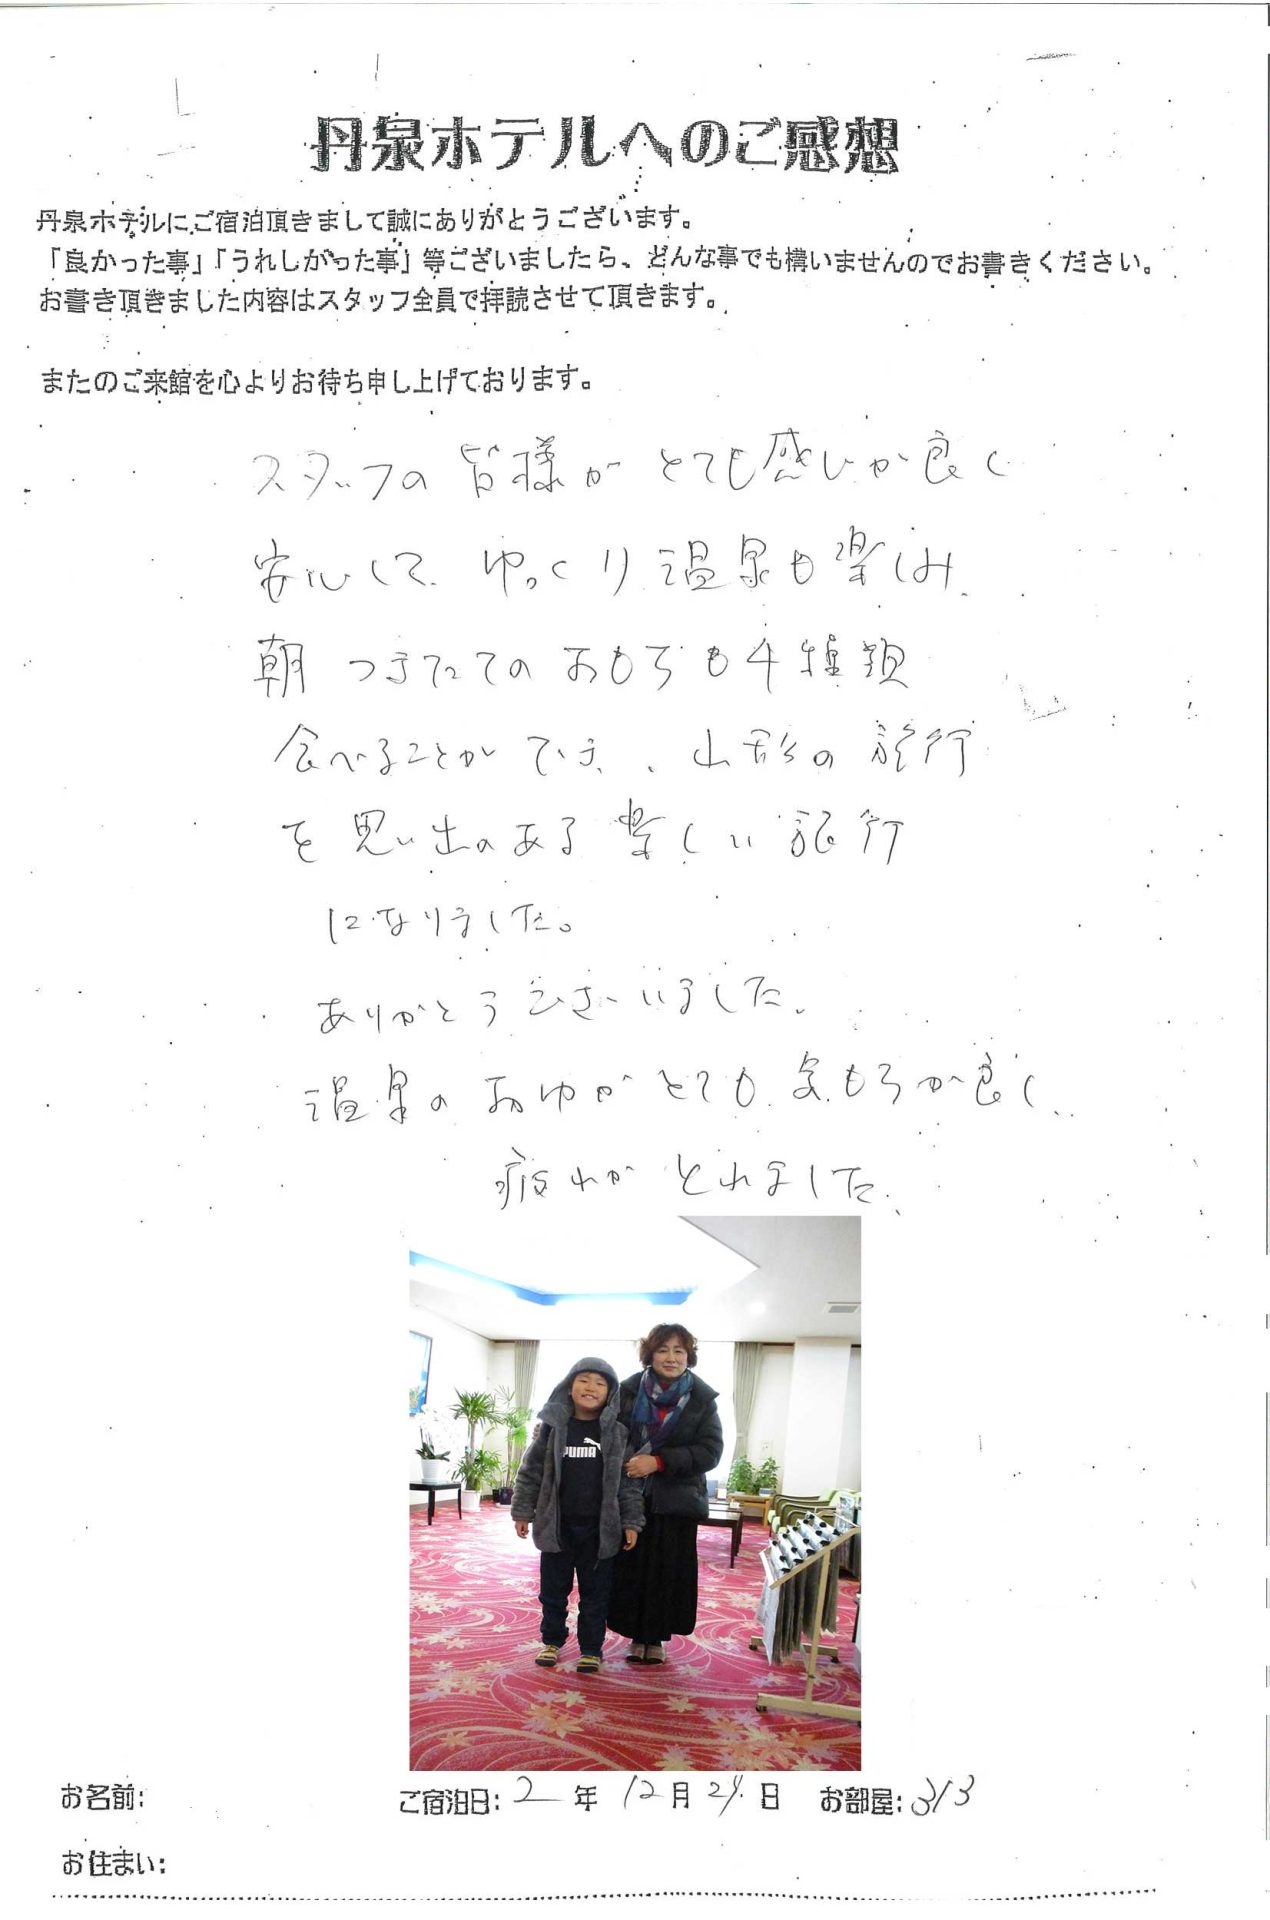 丹泉ホテルへのご感想
丹泉ホテルにご宿泊頂きまして誠にありがとうございます。
「良かった事」「うれしかった事」等ございましたら、どんな事でも構いませんのでお書きください。
お書き頂きました内容はスタッフ全員で拝読させて頂きます。
またのご来館を心よりお待ち申し上げております。
スタッフの皆様がとても感じが良く
安心して、ゆっくり温泉も楽しみ、
朝つきたてのおもちも4種類
食べることができ、山形の旅行
を思い出のある楽しい旅行
になりました。
ありがとうございました。
温泉のおゆがとても気もちが良く、
疲れがとれました。
PUMA
お名前:
ご宿泊日: 2 年 12月 29日 お部屋: 313
お住まい: